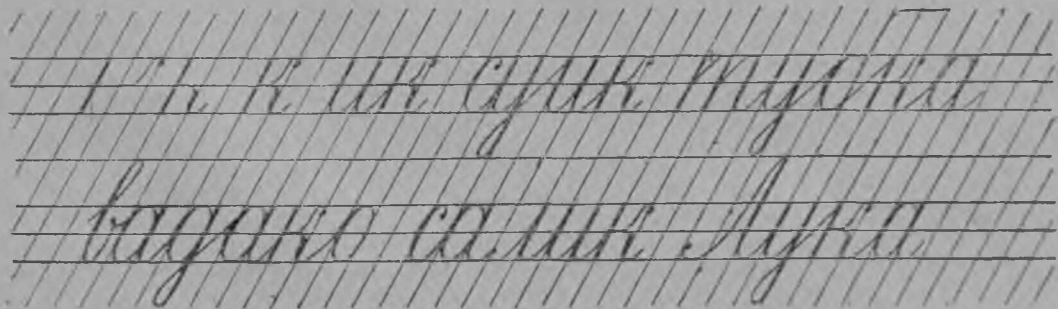 ı к к ик суик туока
вадако салик Лука